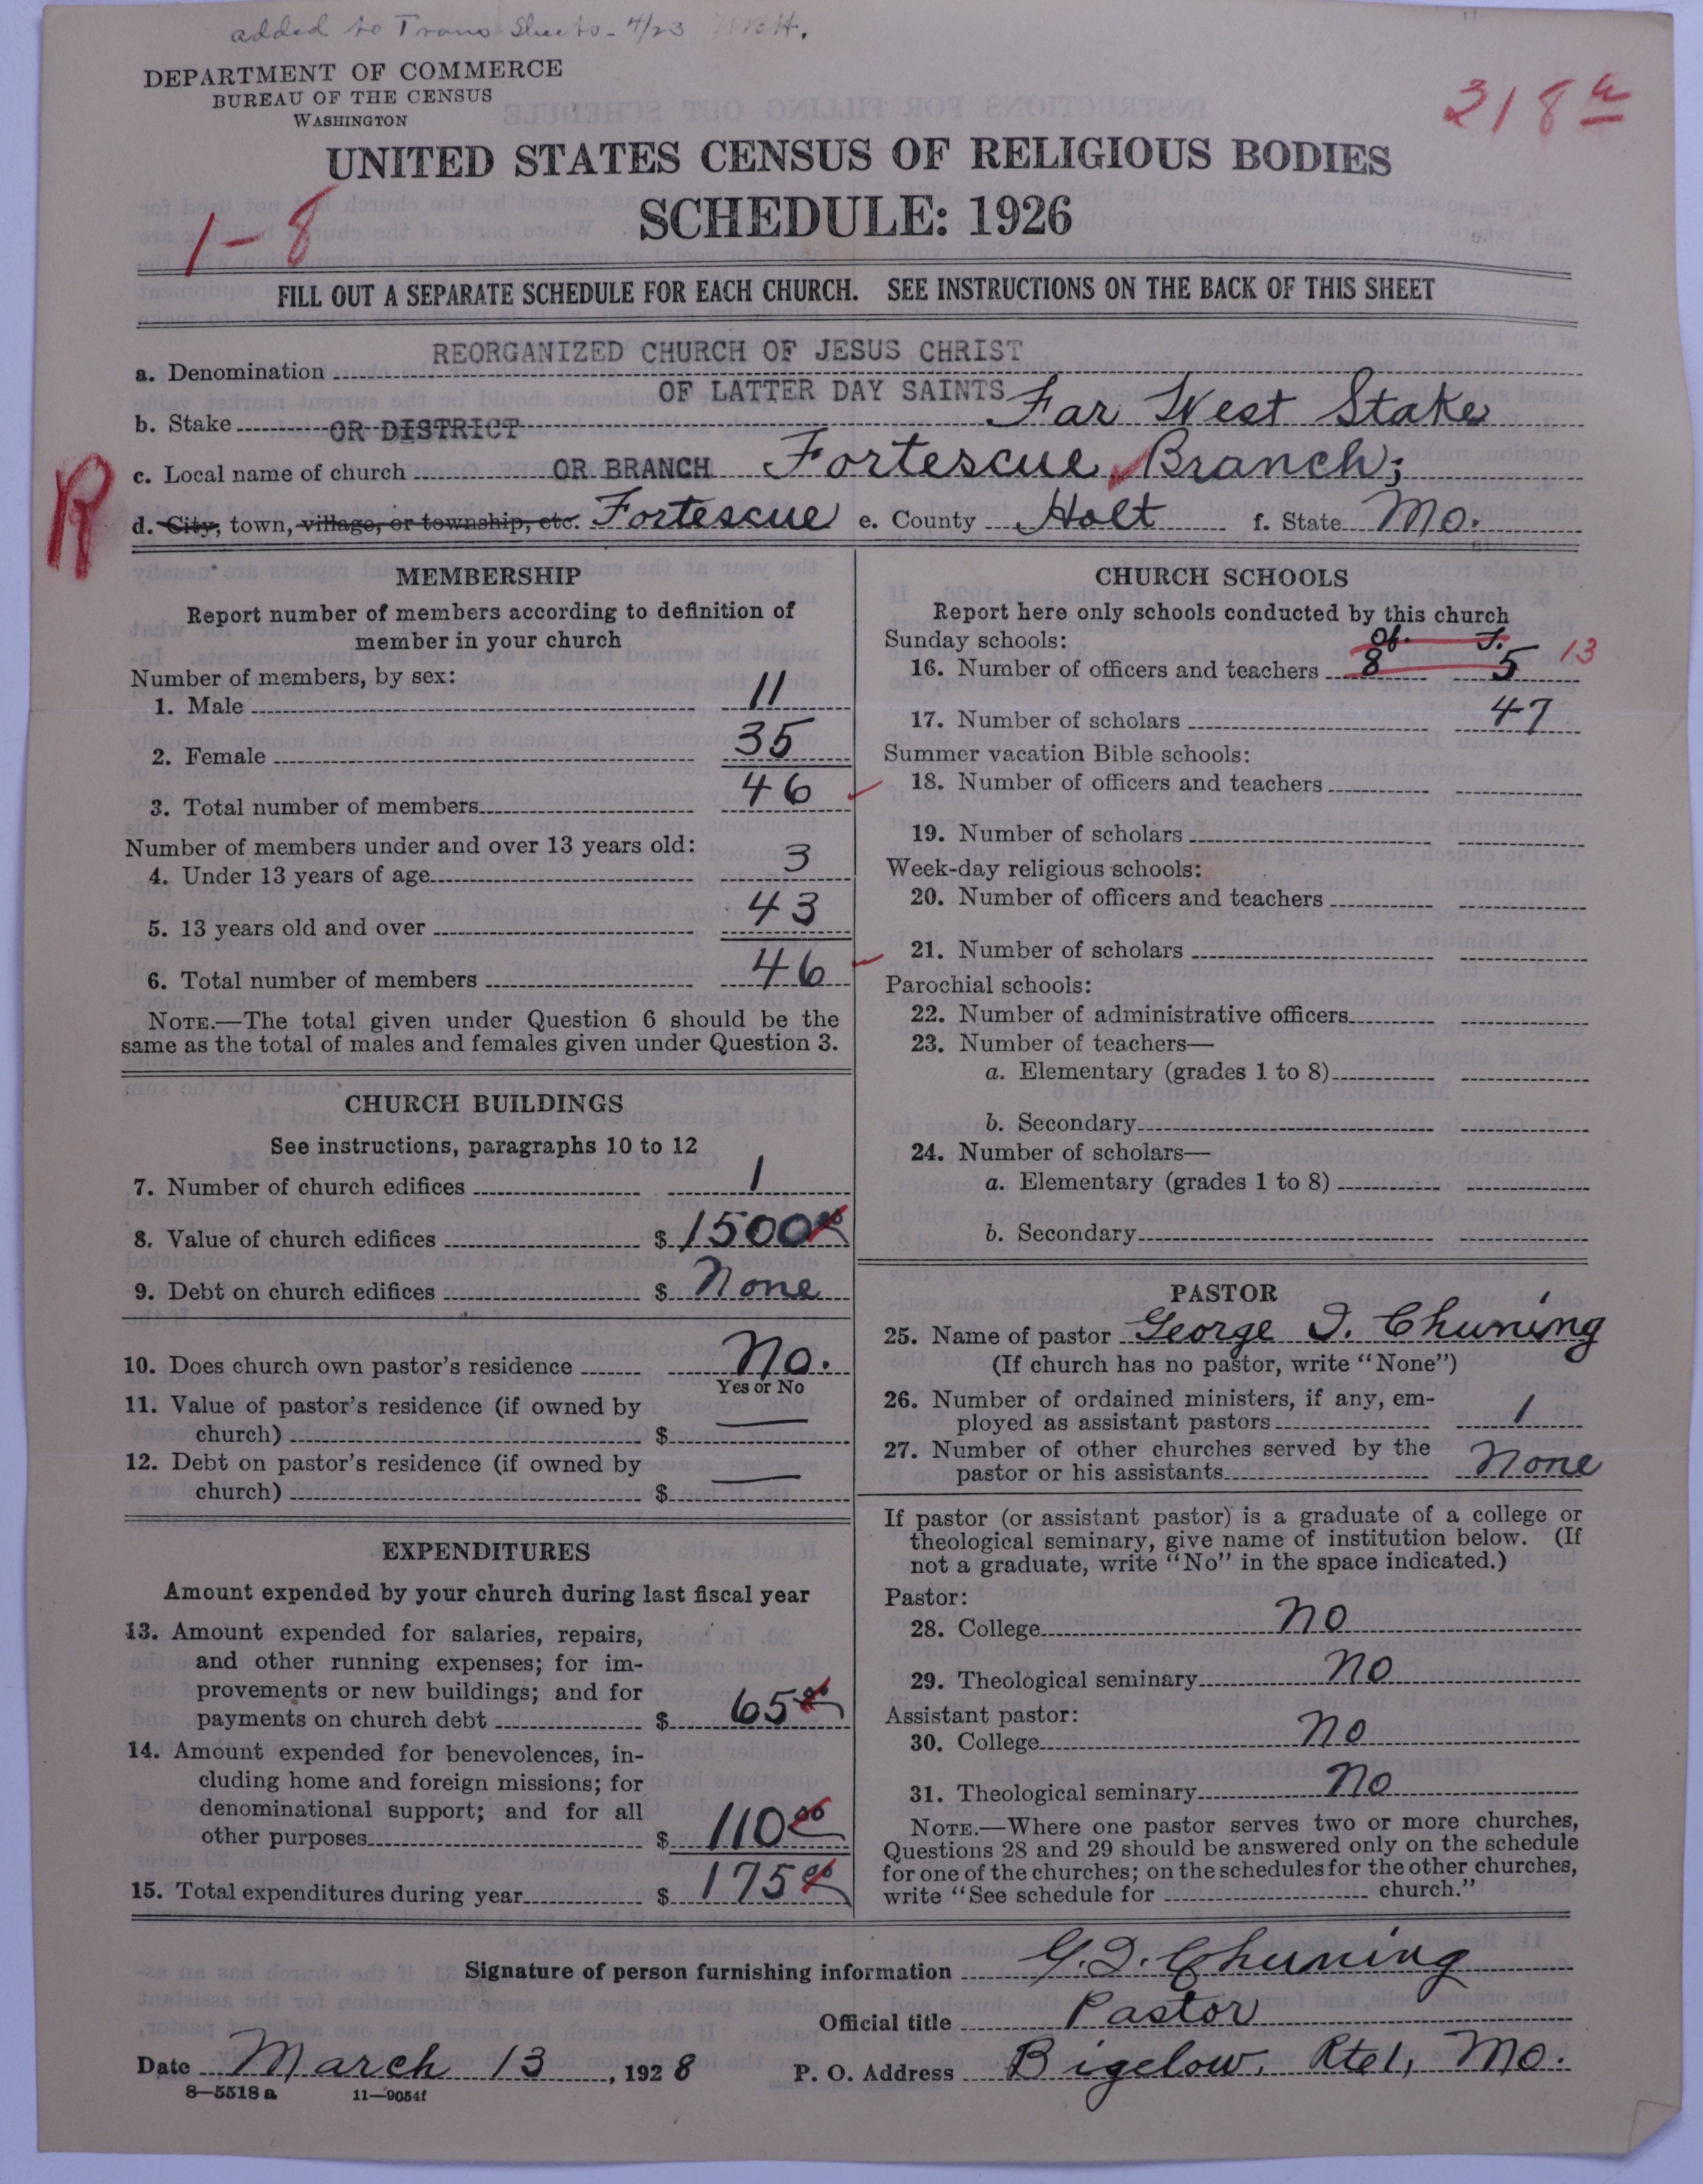 added to Trans Sheets - 4/23
DEPARTMENT OF COMMERCE
BUREAU OF THE CENSUS
WASHINGTON
318 a
UNITED STATES CENSUS OF RELIGIOUS BODIES
SCHEDULE: 1926
1-8
FILL OUT A SEPARATE SCHEDULE FOR EACH CHURCH. SEE INSTRUCTIONS ON THE BACK OF THIS SHEET
a. Denomination REORGANIZED CHURCH OF JESUS CHRIST
OF LATTER DAY SAINTS
b. Stake OR DISTRICT Far West Stake
c. Local name of church OR BRANCH Fortescue, Branch;
R
d. City, town, village, or township, etc. Fortescue e. County Holt f. State Mo.
MEMBERSHIP
Report number of members according to definition of
member in your church
Number of members, by sex:
1. Male 11
2. Female 35
3. Total number of members 46
Number of members under and over 13 years old:
4. Under 13 years of age 3
5. 13 years old and over 43
6. Total number of members 46
NOTE.—The total given under Question 6 should be the
same as the total of males and females given under Question 3.
CHURCH BUILDINGS
See instructions, paragraphs 10 to 12
7. Number of church edifices 1
8. Value of church edifices $ 1500 00
9. Debt on church edifices $ None
10. Does church own pastor's residence No.
Yes or No
11. Value of pastor's residence (if owned by
church) $ —
12. Debt on pastor's residence (if owned by
church) $ —
EXPENDITURES
Amount expended by your church during last fiscal year
13. Amount expended for salaries, repairs,
and other running expenses; for im-
provements or new buildings; and for
payments on church debt $ 65 00
14. Amount expended for benevolences, in-
cluding home and foreign missions; for
denominational support; and for all
other purposes $ 110 00
15. Total expenditures during year $ 175 00
CHURCH SCHOOLS
Report here only schools conducted by this church
Sunday schools:
Of. T.
16. Number of officers and teachers 8 5 13
17. Number of scholars 47
Summer vacation Bible schools:
18. Number of officers and teachers
19. Number of scholars
Week-day religious schools:
20. Number of officers and teachers
21. Number of scholars
Parochial schools:
22. Number of administrative officers
23. Number of teachers—
a. Elementary (grades 1 to 8)
b. Secondary
24. Number of scholars—
a. Elementary (grades 1 to 8)
b. Secondary
PASTOR
25. Name of pastor George I. Chuning
(If church has no pastor, write "None")
26. Number of ordained ministers, if any, em-
ployed as assistant pastors 1
27. Number of other churches served by the
pastor or his assistants None
If pastor (or assistant pastor) is a graduate of a college or
theological seminary, give name of institution below. (If
not a graduate, write "No" in the space indicated.)
Pastor:
28. College No
29. Theological seminary No
Assistant pastor:
30. College No
31. Theological seminary No
NOTE.—Where one pastor serves two or more churches,
Questions 28 and 29 should be answered only on the schedule
for one of the churches; on the schedules for the other churches,
write "See schedule for church."
Signature of person furnishing information G. I. Chuning
Official title Pastor
Date March 13, 1928 P. O. Address Bigelow, Rte 1, Mo.
8—5518 a 11—9054f